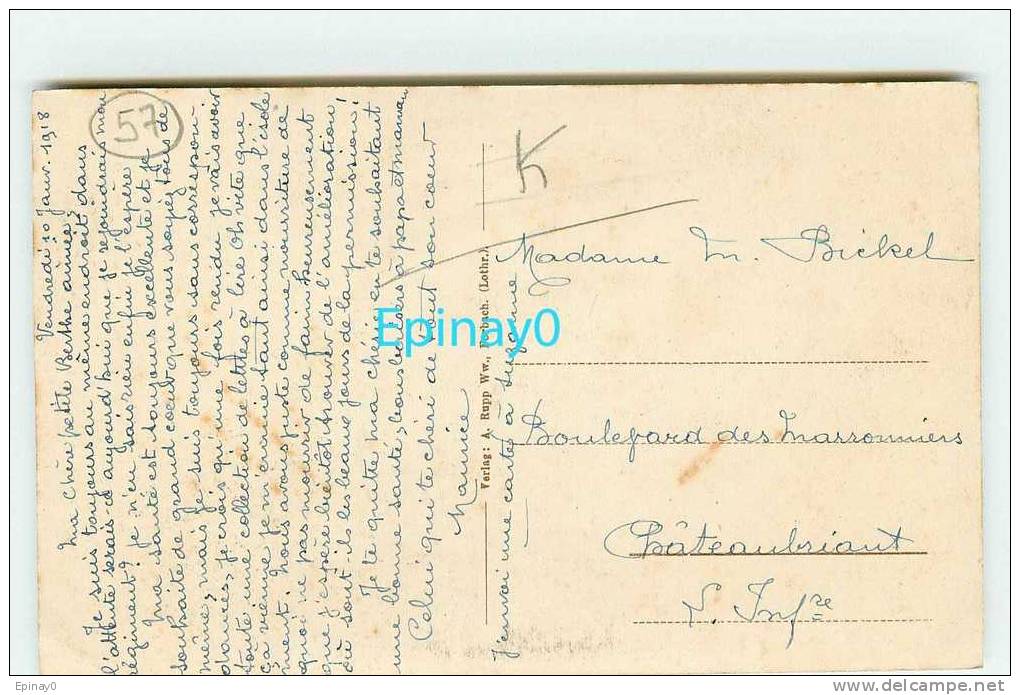 57
Vendredi 10 Janv. 1918
Ma chère petite Berthe aimée,
Je suis toujours au même endroit dans
l'attente serais-ce aujourd'hui que je rejoindrais mon
régiment? je n'en sais rien enfin je l'espère
Ma santé est toujours excellente et je
souhaite de grand cœur que vous soyez tous de
même, mais je suis toujours sans correspon-
dances, je crois qu'une fois rendu je vais avoir
toute une collection de lettres à lire oh vite que
ça vienne je m'ennuie tant ainsi dans l'isole
ment. Nous avons juste comme nourriture de
quoi ne pas mourir de faim heureusement
que j'espère bientôt trouver de l'amélioration
où sont-ils les beaux jours de la permission!
Je te quitte ma chérie en te souhaitant
une bonne santé, bons baisers à papa et maman
Celui qui te chéri de tout son cœur
Maurice
Verlag: A. Rupp Ww., Forbach. (Lothr.)
J'envoi une carte à Suzanne
Madame M. Bickel
Boulevard des Marronniers
Châteaubriant
L. Infre
Epinay0
Epinay0
delcampe.net